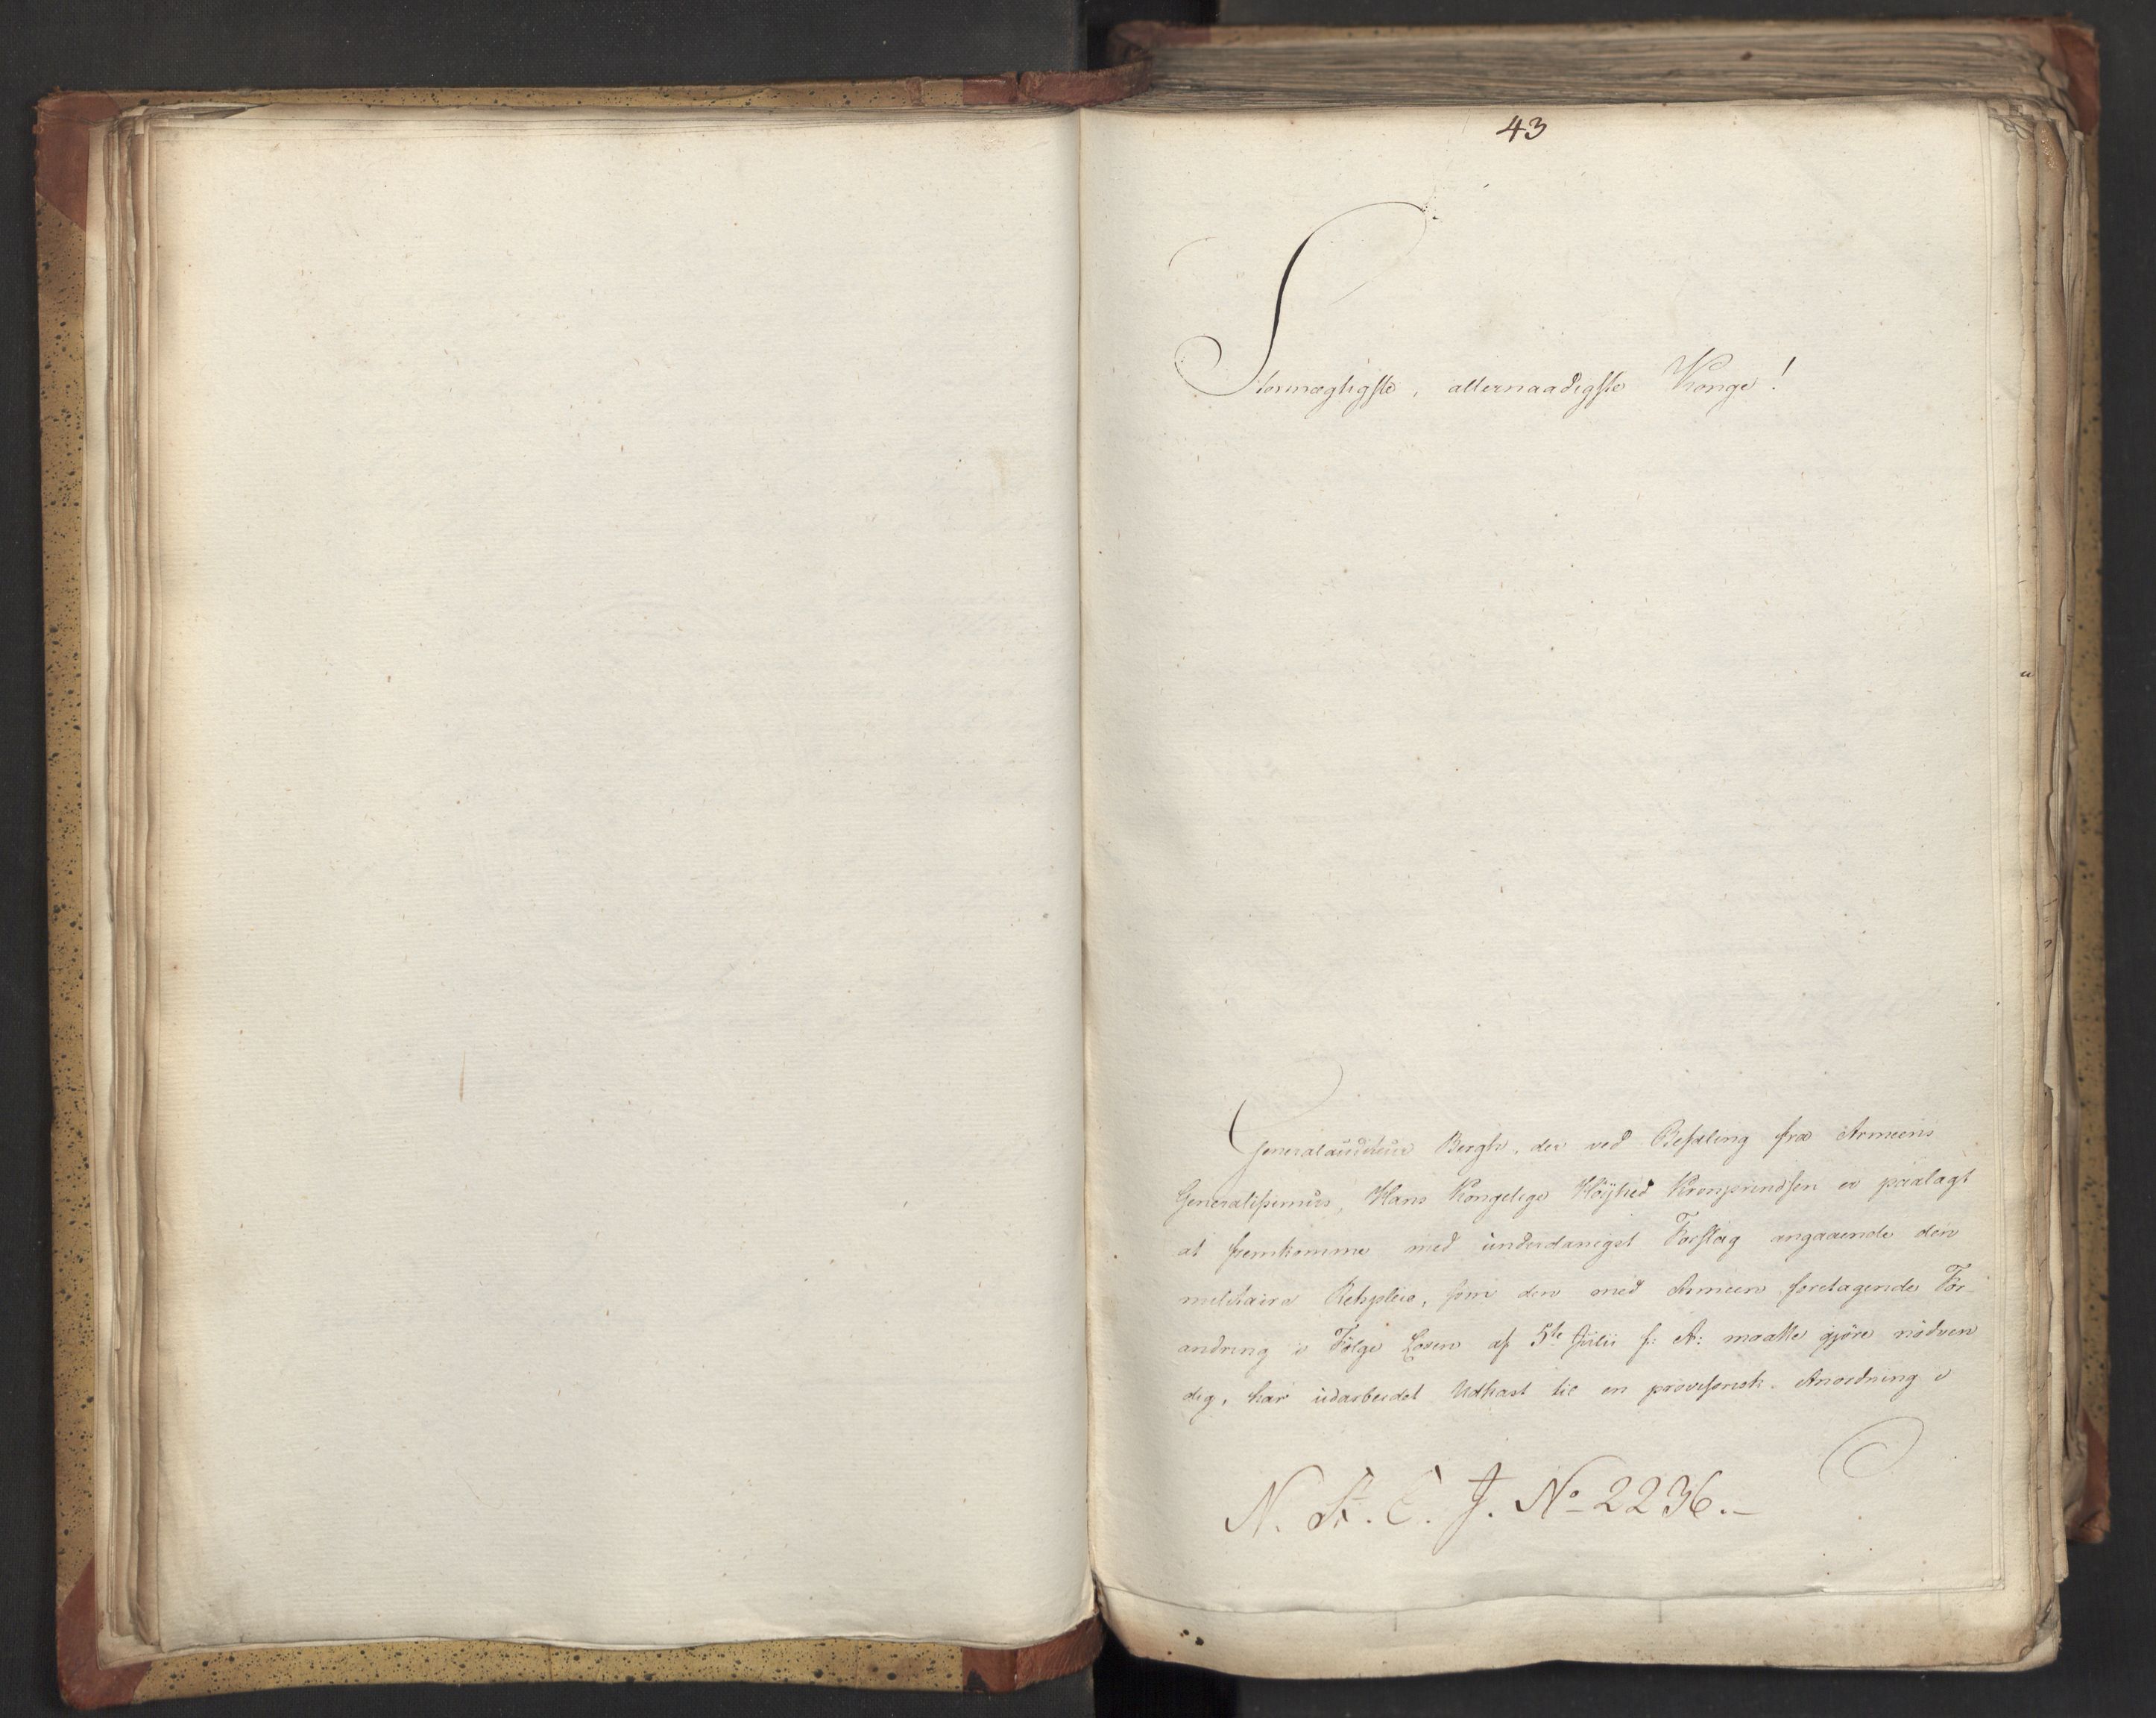 43
Stormægtigste, allernaadigste Konge!
Generalauditeur Bergh, der ved Befaling fra Armeens
Generalissimus, Hans Kongelige Høyhed Kronprindsen er paalagt
at fremkomme med underdanigst Forslag angaaende den
militaire Retspleie, som den med Armeen foretagende For-
andring i Følge Loven af 5te Julii f: A: maatte gjøre nødven
dig, har udarbeidet Udkast til en provisorisk Anordning i
N. St. C. J. No 2236.-